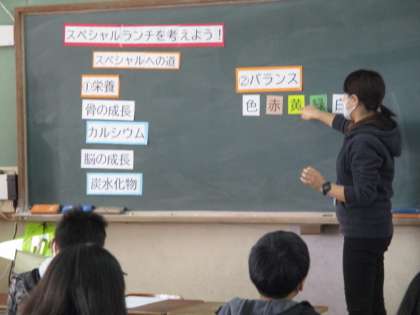 スペシャルランチを考えよう!
スペシャルへの道
①栄養
骨の成長
カルシウム
脳の成長
炭水化物
②バランス
色 赤 黄 緑 白